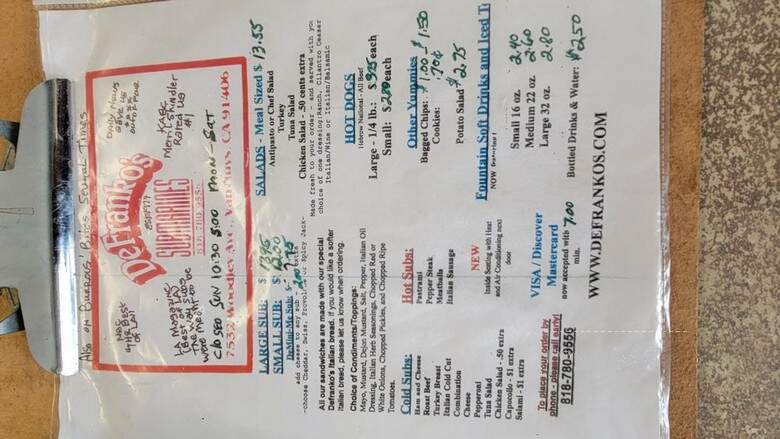 Also on Buerdos' Bites Several Times
NAMED
the Best
of LA!!
Daily News
Gave Us
****
out of Four
DeFranko's
EST 1974
SUBMARINES
818 780 9556
LA Magazine
Best of LA
The way subs
were meant to be
KABC
Merril Shindler
Rated Us
#1
Closed SUN 10:30 5:00 MON-SAT
7532 Woodley Ave., Van Nuys, CA 91406
LARGE SUB: $ 13.45
SMALL SUB: $ 12.00
DeMini-Me Sub: $
Add cheese to any sub - .200 extra
-choose Cheddar, Swiss, Provolone or Spicy Jack-
All our sandwiches are made with our special
Defranko's Italian bread. If you would like a softer
Italian bread, please let us know when ordering.
Choice of Condiments/Toppings:
Mayo, Mustard, Dejon Mustard, Salt, Pepper, Italian Oil
Dressing, Italian Herb Seasonings, Chopped Red or
White Onions, Chopped Pickles, and Chopped Ripe
Tomatoes.
Cold Subs:
Ham and Cheese
Roast Beef
Turkey Breast
Italian Cold Cut
Combination
Cheese
Pepperoni
Tuna Salad
Chicken Salad - .50 extra
Capocollo - $1 extra
Salami - $1 extra
Hot Subs:
Pastrami
Pepper Steak
Meatballs
Italian Sausage
NEW
Inside Seating with Heat
and Air Conditioning next
door
To place your order by
phone - please call early!
818-780-9556
VISA / Discover
Mastercard
now accepted with 7.00
min.
SALADS - Meal Sized $ 13.55
Antipasto or Chef Salad
Turkey
Tuna Salad
Chicken Salad - .50 cents extra
Made fresh to your order - and served with you
choice of one dressing: Ranch, Cilantro Ceasar
Italian/Wine or Italian/Balsamic
HOT DOGS
Hebrew National - All Beef
Large - 1/4 lb.: $ each
Small: $ each
Other Yummies
Bagged Chips: $1.00 - $1.50
Cookies: .70¢
Potato Salad $2.75
Fountain Soft Drinks and Iced T
NOW
Small 16 oz. 2.40
Medium 22 oz. 2.60
Large 32 oz. 2.80
Bottled Drinks & Water: $2.50
WWW.DEFRANKOS.COM